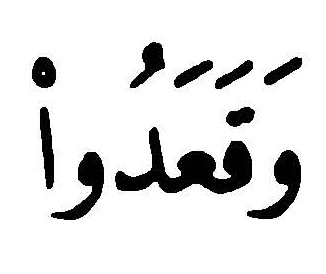 وَقَعَدُوا۟